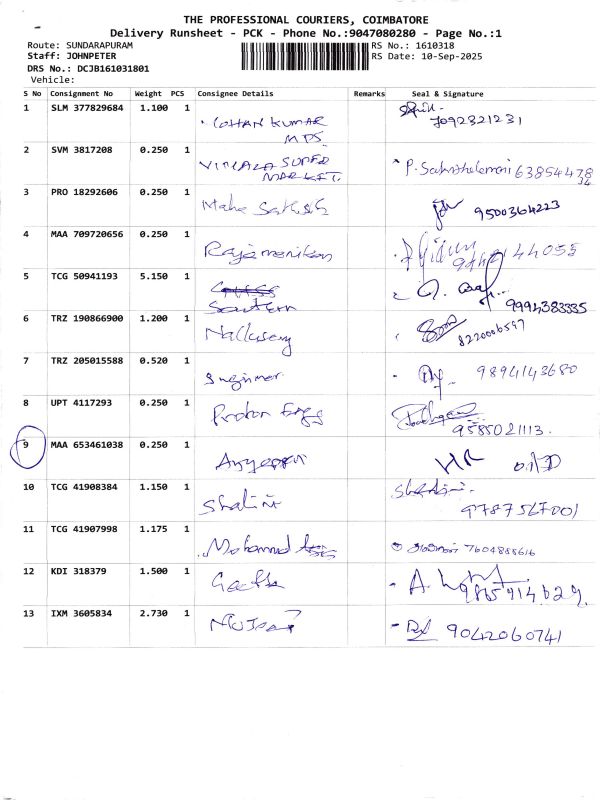 THE PROFESSIONAL COURIERS, COIMBATORE
Delivery Runsheet - PCK - Phone No.:9047080280 - Page No.:1
Route: SUNDARAPURAM
RS No.: 1610318
Staff: JOHNPETER
RS Date: 10-Sep-2025
DRS No.: DCJB161031801
Vehicle:
S No Consignment No Weight PCS Consignee Details Remarks Seal & Signature
1 SLM 377829684 1.100 1 KUMAR 7092321231
MDS
2 SVM 3817208 0.250 1 SUPER 63854478
MARKET.
3 PRO 18292606 0.250 1 Maha Sathish 9500364223
4 MAA 709720656 0.250 1 Rajamanikam
5 TCG 50941193 5.150 1
Southern 9994383335
6 TRZ 190866900 1.200 1 Nallusamy 8220006597
7 TRZ 205015588 0.520 1 9894143680
8 UPT 4117293 0.250 1 Proton 9585021113.
9 MAA 653461038 0.250 1
10 TCG 41908384 1.150 1 Shalini 9787567001
11 TCG 41907998 1.175 1 Mohammed 7604888616
12 KDI 318379 1.500 1 Geetha
13 IXM 3605834 2.730 1 9042060741